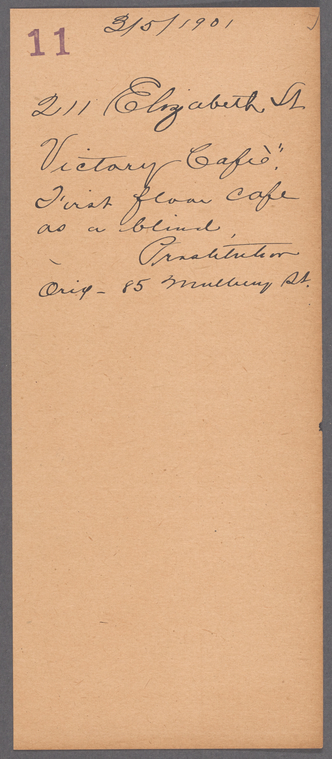 3/5/1901
11
211 Elizabeth St
Victory Cafe".
First floor cafe
as a blind,
Prostitution
Orig - 85 Mulberry St.